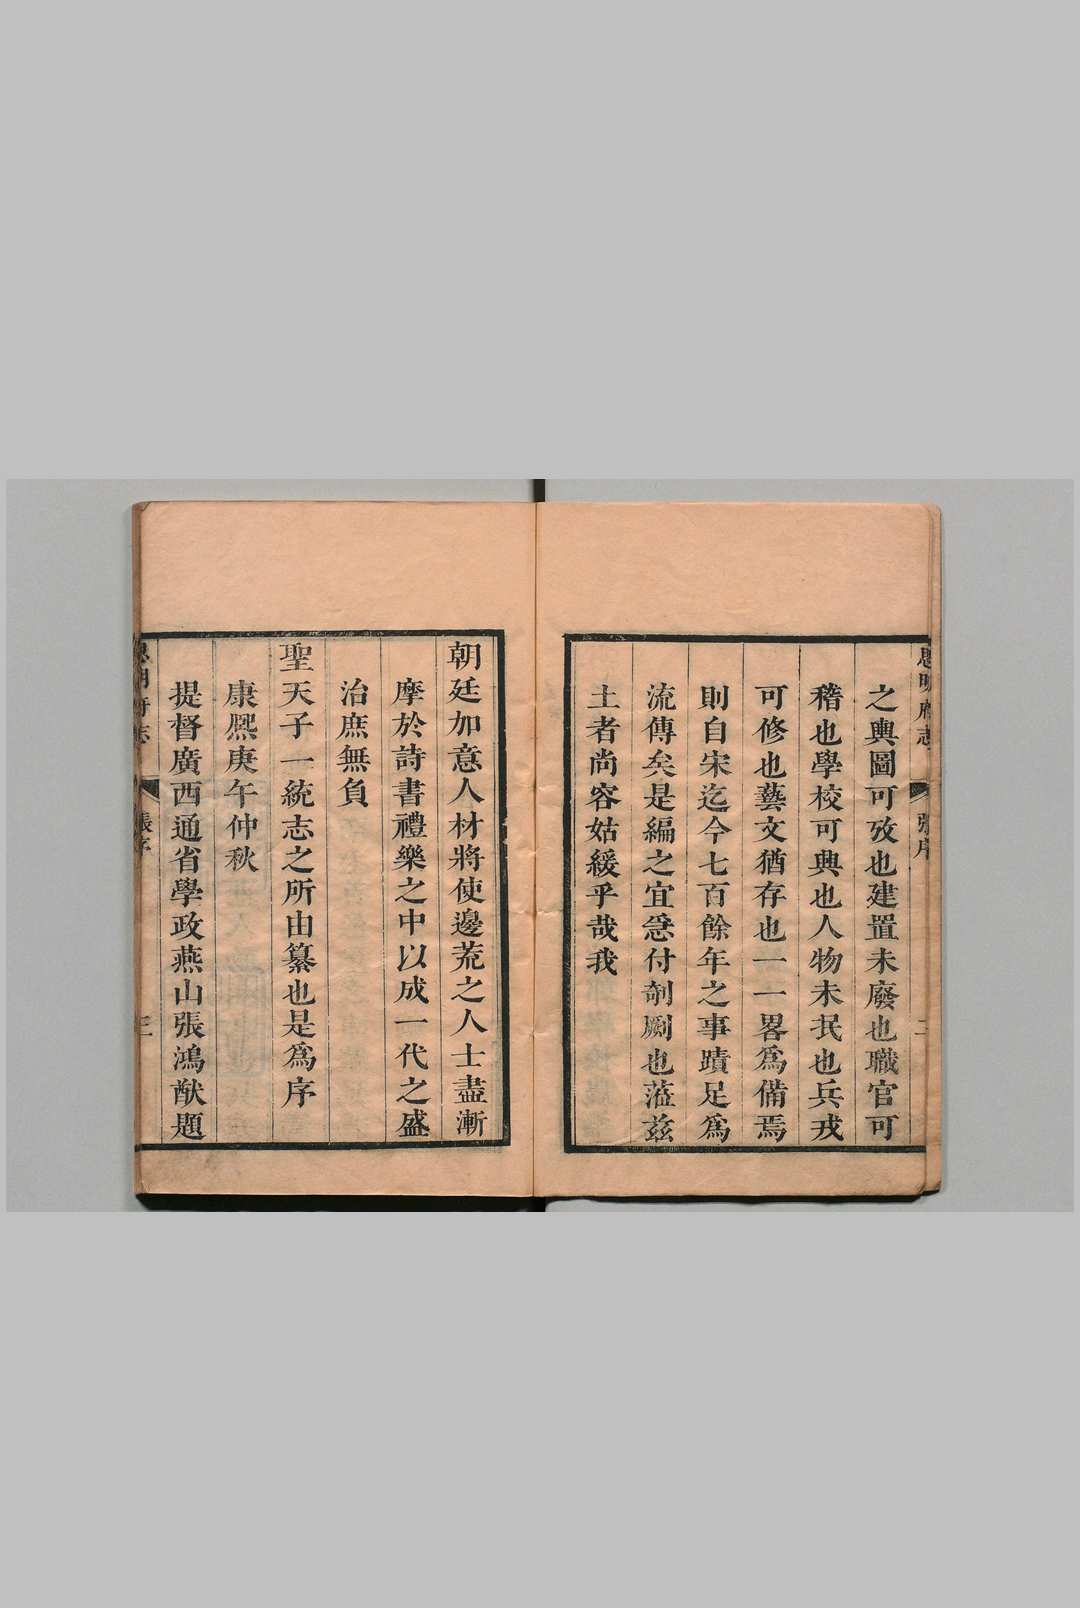 思明府志 張序 二
之輿圖可攷也建置未廢也職官可
稽也學校可興也人物未民也兵戎
可修也藝文猶存也一一畧為備焉
則自宋迄今七百餘年之事蹟足為
流傳矣是編之宜急付剞劂也蒞茲
土者尚容姑緩乎哉我
朝廷加意人材將使邊荒之人士盡漸
摩於詩書禮樂之中以成一代之盛
治庶無負
聖天子一統志之所由纂也是為序
康熙庚午仲秋
提督廣西通省學政燕山張鴻猷題
思明府志 張序 三